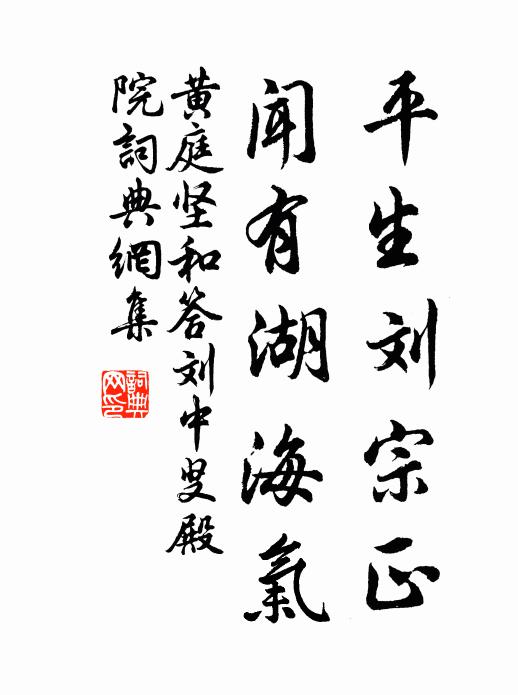 平生刘宗正
闻有湖海氣
黄庭坚和答刘中叟殿
院詞典網集
詞典网印